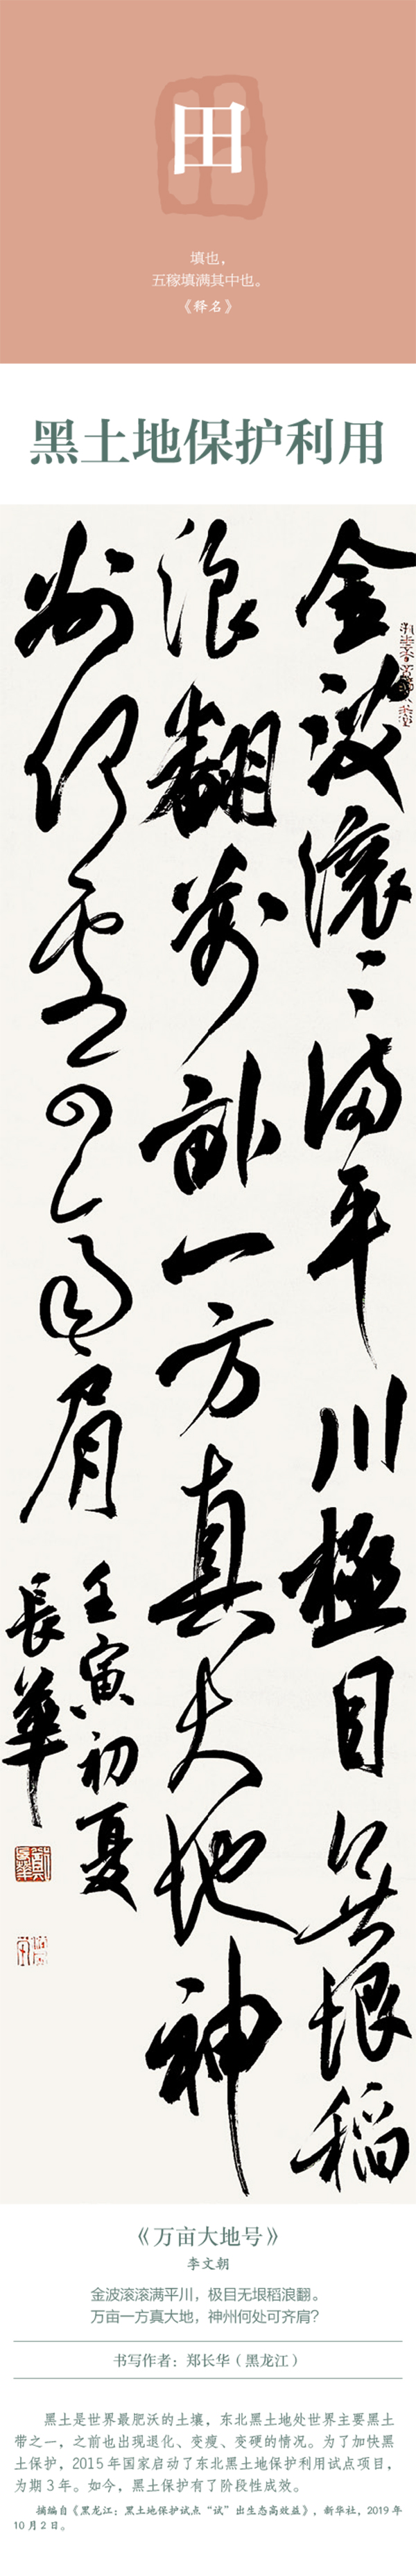 田
填也，
五稼填满其中也。
《释名》
黑土地保护利用
金波滚滚满平川极目无垠稻
浪翻万亩一方真大地神
州何处可齐肩
壬寅初夏
長華
《万亩大地号》
李文朝
金波滚滚满平川，极目无垠稻浪翻。
万亩一方真大地，神州何处可齐肩？
书写作者：郑长华（黑龙江）
黑土是世界最肥沃的土壤，东北黑土地处世界主要黑土
带之一，之前也出现退化、变瘦、变硬的情况。为了加快黑
土保护，2015 年国家启动了东北黑土地保护利用试点项目，
为期 3 年。如今，黑土保护有了阶段性成效。
摘编自《黑龙江：黑土地保护试点“试”出生态高效益》，新华社，2019 年
10 月 2 日。